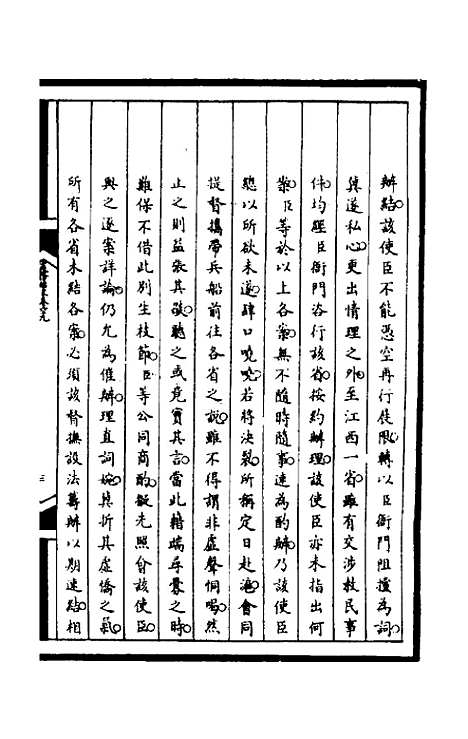 辦結該使臣不能憑空再行從限轉以臣衙門阻擋為詞
冀遂私心更出情理之外至江西一省雖有交涉教民事
件均經臣衙門咨行該省按約辦理該使臣亦未指出何
案臣等於以上各案無不隨時隨事速為酌辦乃該使臣
總以所欲未遂肆口嘵嘵若將決裂所稱定日赴滬會同
提督攜帶兵船前往各省之說雖不得謂非虛聲恫喝然
止之則益張其欲聽之或竟實其言當此藉端尋釁之時
難保不借此別生枝節臣等公同商酌擬先照會該使臣
與之逐案詳論仍允為催辦理直詞婉冀折其虛憍之氣
所有各省未結各案必須該督撫設法籌辦以期速結相